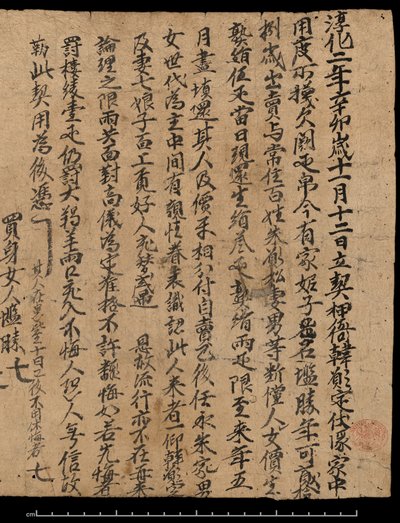 淳化二年辛卯歲十一月十二日立契押衙韓願定伏緣家中
用度不攬欠闕疋帛今有家妮子名勝年可貳拾
捌歲出賣与常住百姓朱願松妻男等斷償人女價生
熟絹伍疋當日現還生絹叁疋熟絹兩疋限至來年五
月盡填還其人及價互相分付自賣已後任永朱家男
女世代為主中間有親情眷表識認此人來者一仰韓願定
及妻七娘子面上覓好人充替或遇恩赦流行亦不在再來
論理之限兩共面對商儀為定准格不許翻悔如若先悔者
罰樓綾壹疋仍罰大羯羊兩口充入不悔人恐人無信故
勒此契用為後憑
其人在患比至十日已後不用休悔者
買身女人勝
cm